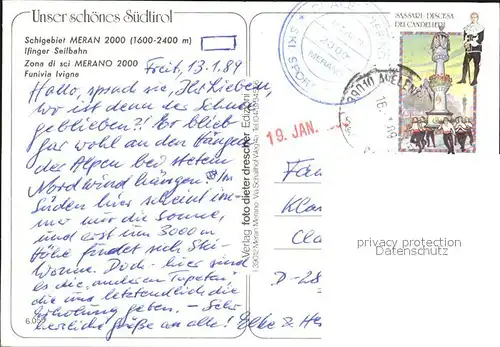 Unser schönes Südtirol
Schigebiet MERAN 2000 (1600-2400 m)
Ifinger Seilbahn
Zona di sci MERANO 2000
Funivia Ivigna
Freit. 13.1.89
Hallo, sprach sie, Ihr Lieben,
wo ist denn der Schnee
geblieben?! Er blieb
gar wohl an den Hängen
der Alpen bei stetem
Nordwind hängen! Im
Süden hier scheint im-
mer nur die Sonne,
und erst um 3000 m
Höhe findet sich Ski-
Wonne. Doch - hier sind
es die "anderen Tapeten"
die uns letztendlich die
Erholung geben. - Sehr
herzliche Grüße an alle! Elke &
6.059
Verlag foto dieter drescher Edizioni
I-39012 Meran Merano
SKI SPORT
MERANO
19. JAN.
39010 AVELENGO
SASSARI - DISCESA
DEI CANDELIERI
Fam
Kla
D-28
privacy protection
Datenschutz